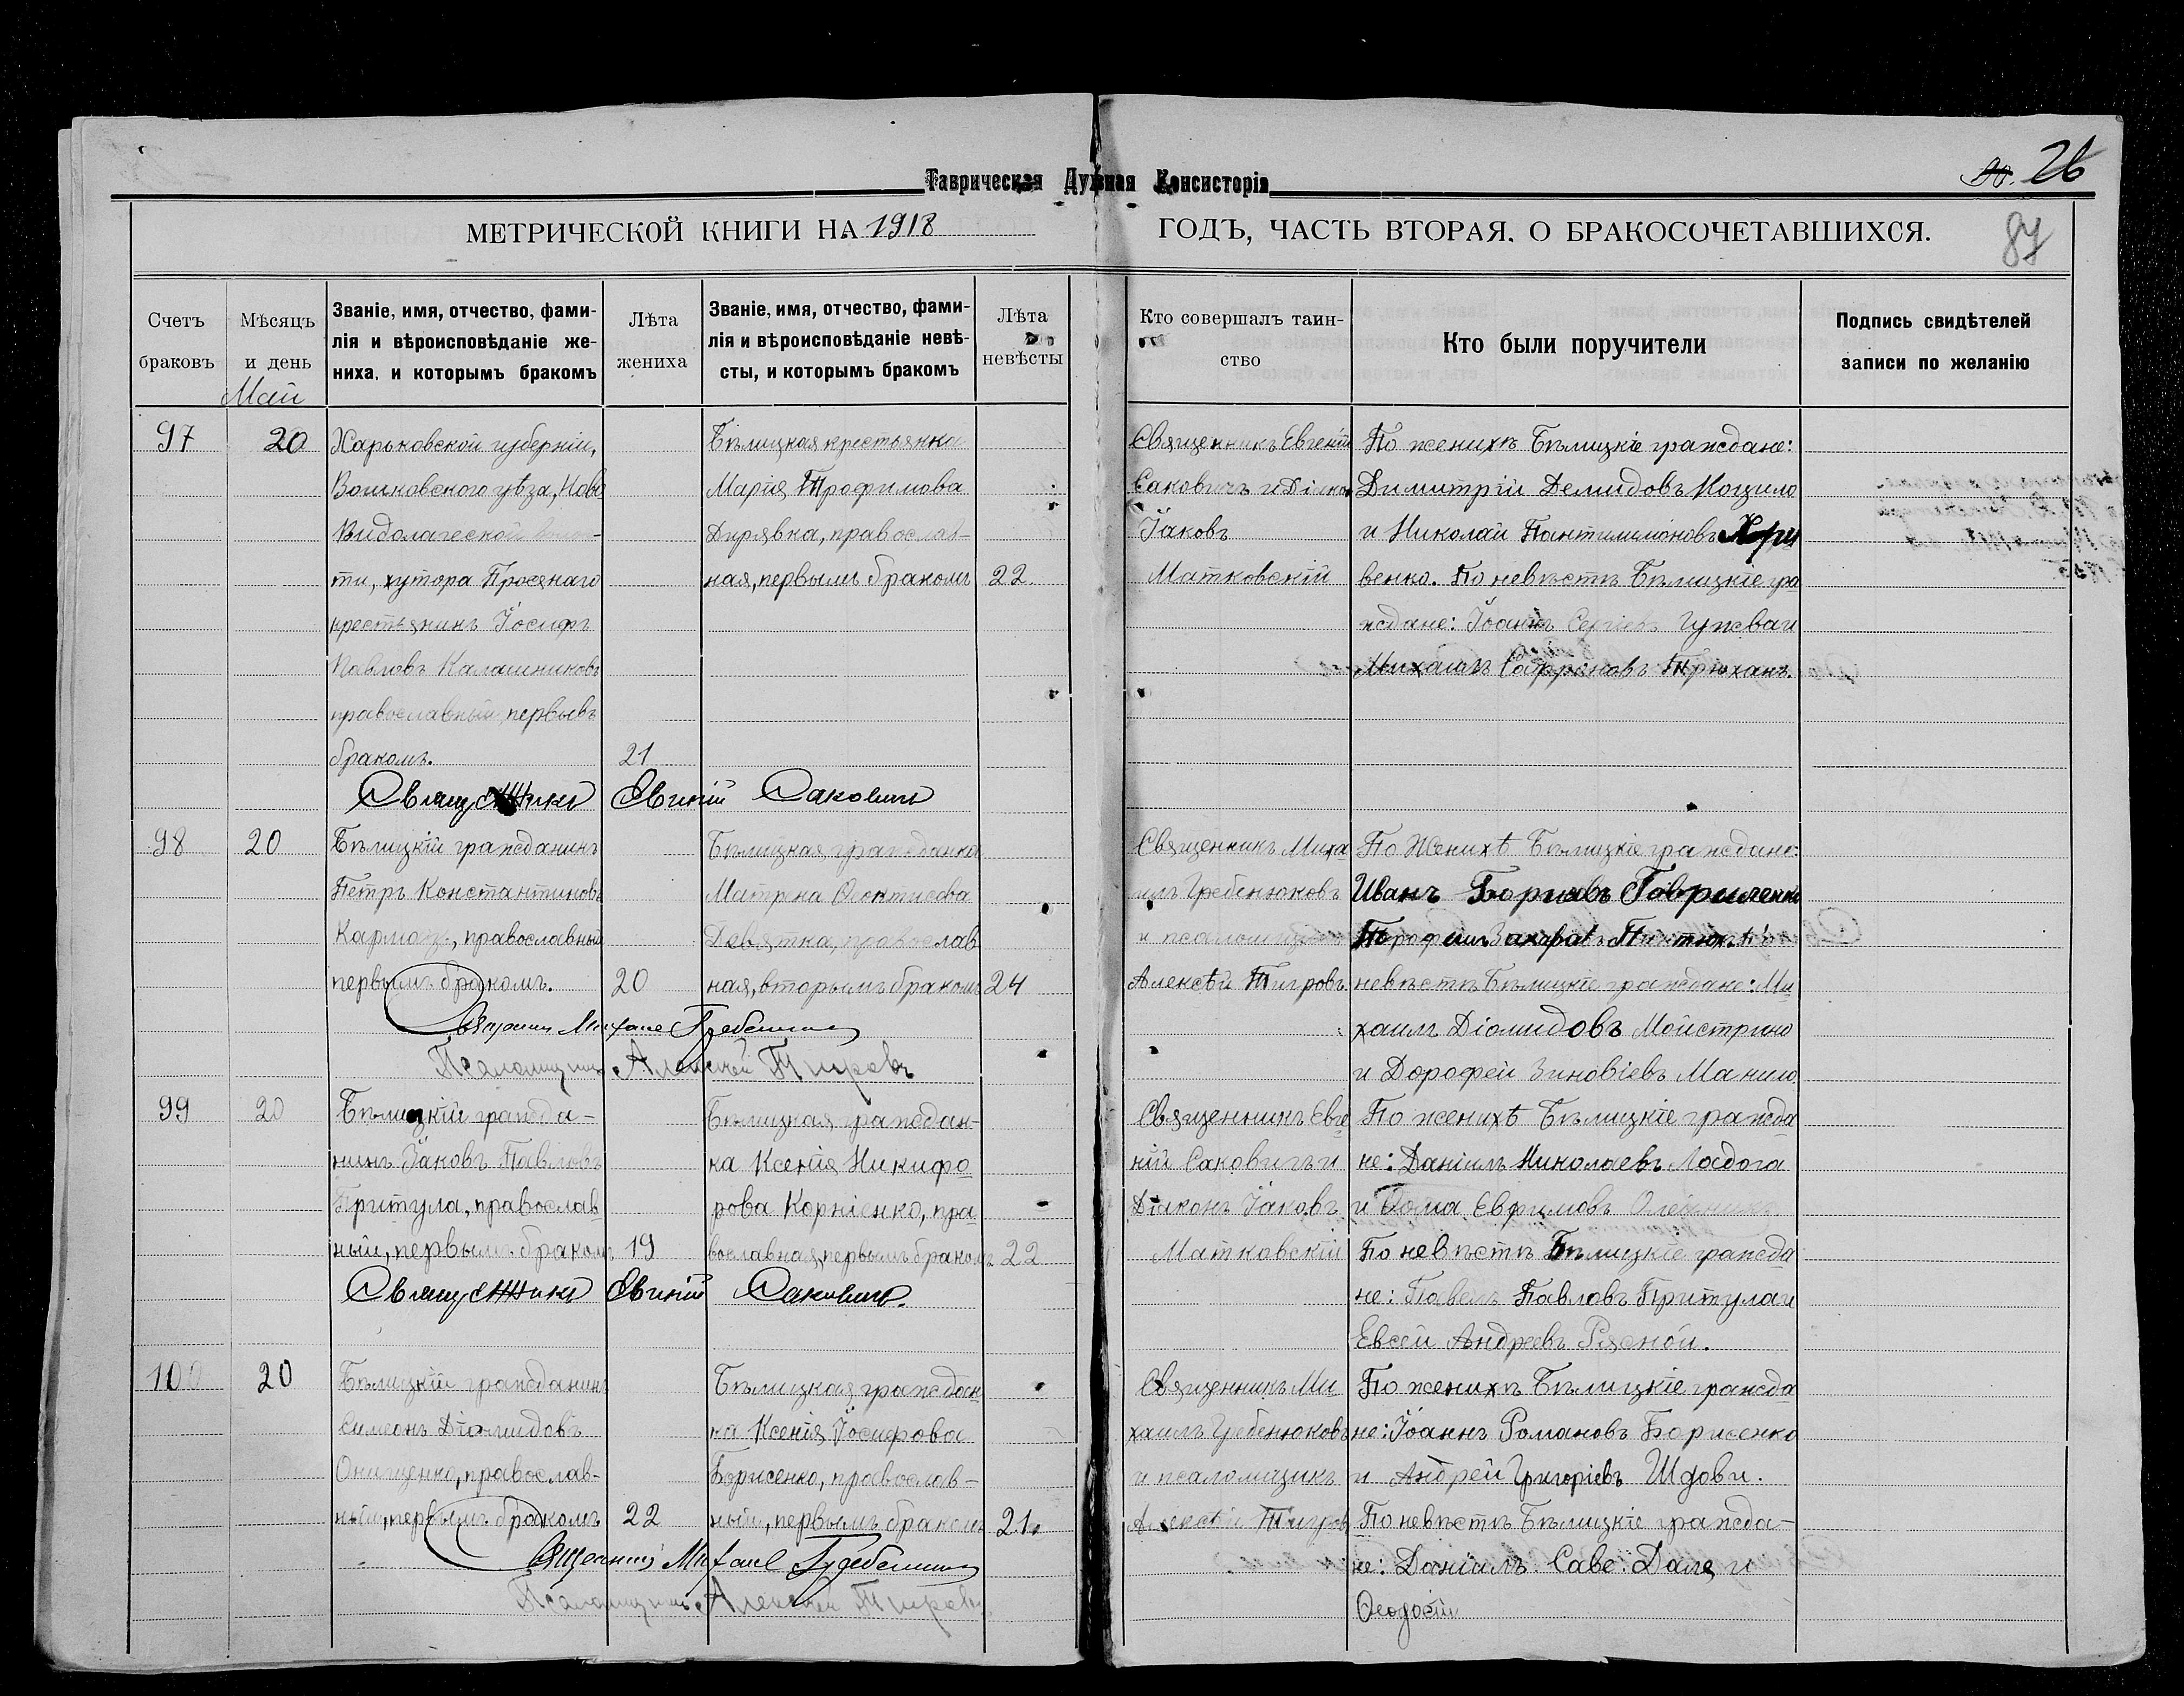 Таврическая Духовная Консисторія
26
МЕТРИЧЕСКОЙ КНИГИ НА 1918
ГОДЪ, ЧАСТЬ ВТОРАЯ, О БРАКОСОЧЕТАВШИХСЯ.
87
Счетъ браковъ
Мѣсяцъ и день
Званіе, имя, отчество, фами-
лія и вѣроисповѣданіе же-
ниха, и которымъ бракомъ
Лѣта жениха
Званіе, имя, отчество, фами-
лія и вѣроисповѣданіе невѣ-
сты, и которымъ бракомъ
Лѣта невѣсты
Кто совершалъ таин-
ство
Кто были поручители
Подпись свидѣтелей
записи по желанію
Май
97
20
Харьковской губерніи,
Волковского уѣзда, Ново
ти, хутора Просянаго
крестьянинъ Іосифъ
Павловъ Калашниковъ
православный, первывъ
бракомъ.
21
Бѣлицкая крестьянка
Марія Трофимова
Дирявка, православ-
ная, первымъ бракомъ
22
Священникъ Евгеній
Саковичъ и Діакон
Іаковъ
Матковскій
По женихѣ Бѣлицкіе граждане:
Димитрій Демидовъ Коцило
и Николай Пантилимоновъ Кри
венко. По невѣстѣ Бѣлицкіе гра
ждане: Іоаннъ Сергіевъ Гужва и
Михаилъ Софроновъ Трюханъ.
Священникъ Евгеній Саковичъ
98
20
Бѣлицкій гражданинъ
Петръ Константиновъ
православный
первымъ бракомъ.
20
Бѣлицкая гражданка
Матрона
Девятка, православ
ная, вторымъ бракомъ
24
Священникъ Миха
илъ Гребенюковъ
и псаломщикъ
Алексѣй Тигровъ
По Женихѣ Бѣлицкіе граждане:
Иванъ Гавриленко
невѣстѣ Бѣлицкіе граждане: Ми
хаилъ Діомидовъ Мойстрино
и Дорофей Зиновіевъ Манило
Священникъ Михаилъ Гребенюковъ
Псаломщикъ Алексѣй Тигровъ
99
20
Бѣлицкій гражда-
нинъ Іаковъ Павловъ
Притула, православ
ный, первымъ бракомъ
19
Бѣлицкая граждан-
ка Ксенія Никифо
рова Корніенко, пра
вославная, первымъ бракомъ
22
Священникъ Евге
ній Саковичъ и
Діаконъ Іаковъ
Матковскій
По женихѣ Бѣлицкіе гражда
не: Даніилъ Николаевъ Ладога
и Ѳома Евфимовъ Олейникъ
По невѣстѣ Бѣлицкіе гражда
не: Павелъ Павловъ Притула и
Евсей Андреевъ Рясной.
Священникъ Евгеній Саковичъ.
100
20
Бѣлицкій гражданинъ
Симеонъ Діомидовъ
Онищенко, православ-
ный, первымъ бракомъ
22
Бѣлицкая граждан
ка Ксенія Іосифова
Борисенко, православ-
ный, первымъ бракомъ
21.
Священникъ Ми
хаилъ Гребенюковъ
и псаломщикъ
Алексѣй Тигровъ
По женихѣ Бѣлицкіе гражда
не: Іоаннъ Романовъ Борисенко
и Андрей Григоріевъ
По невѣстѣ Бѣлицкіе гражда-
не: Даніилъ Саве и
Священникъ Михаилъ Гребенюковъ
Псаломщикъ Алексѣй Тигровъ